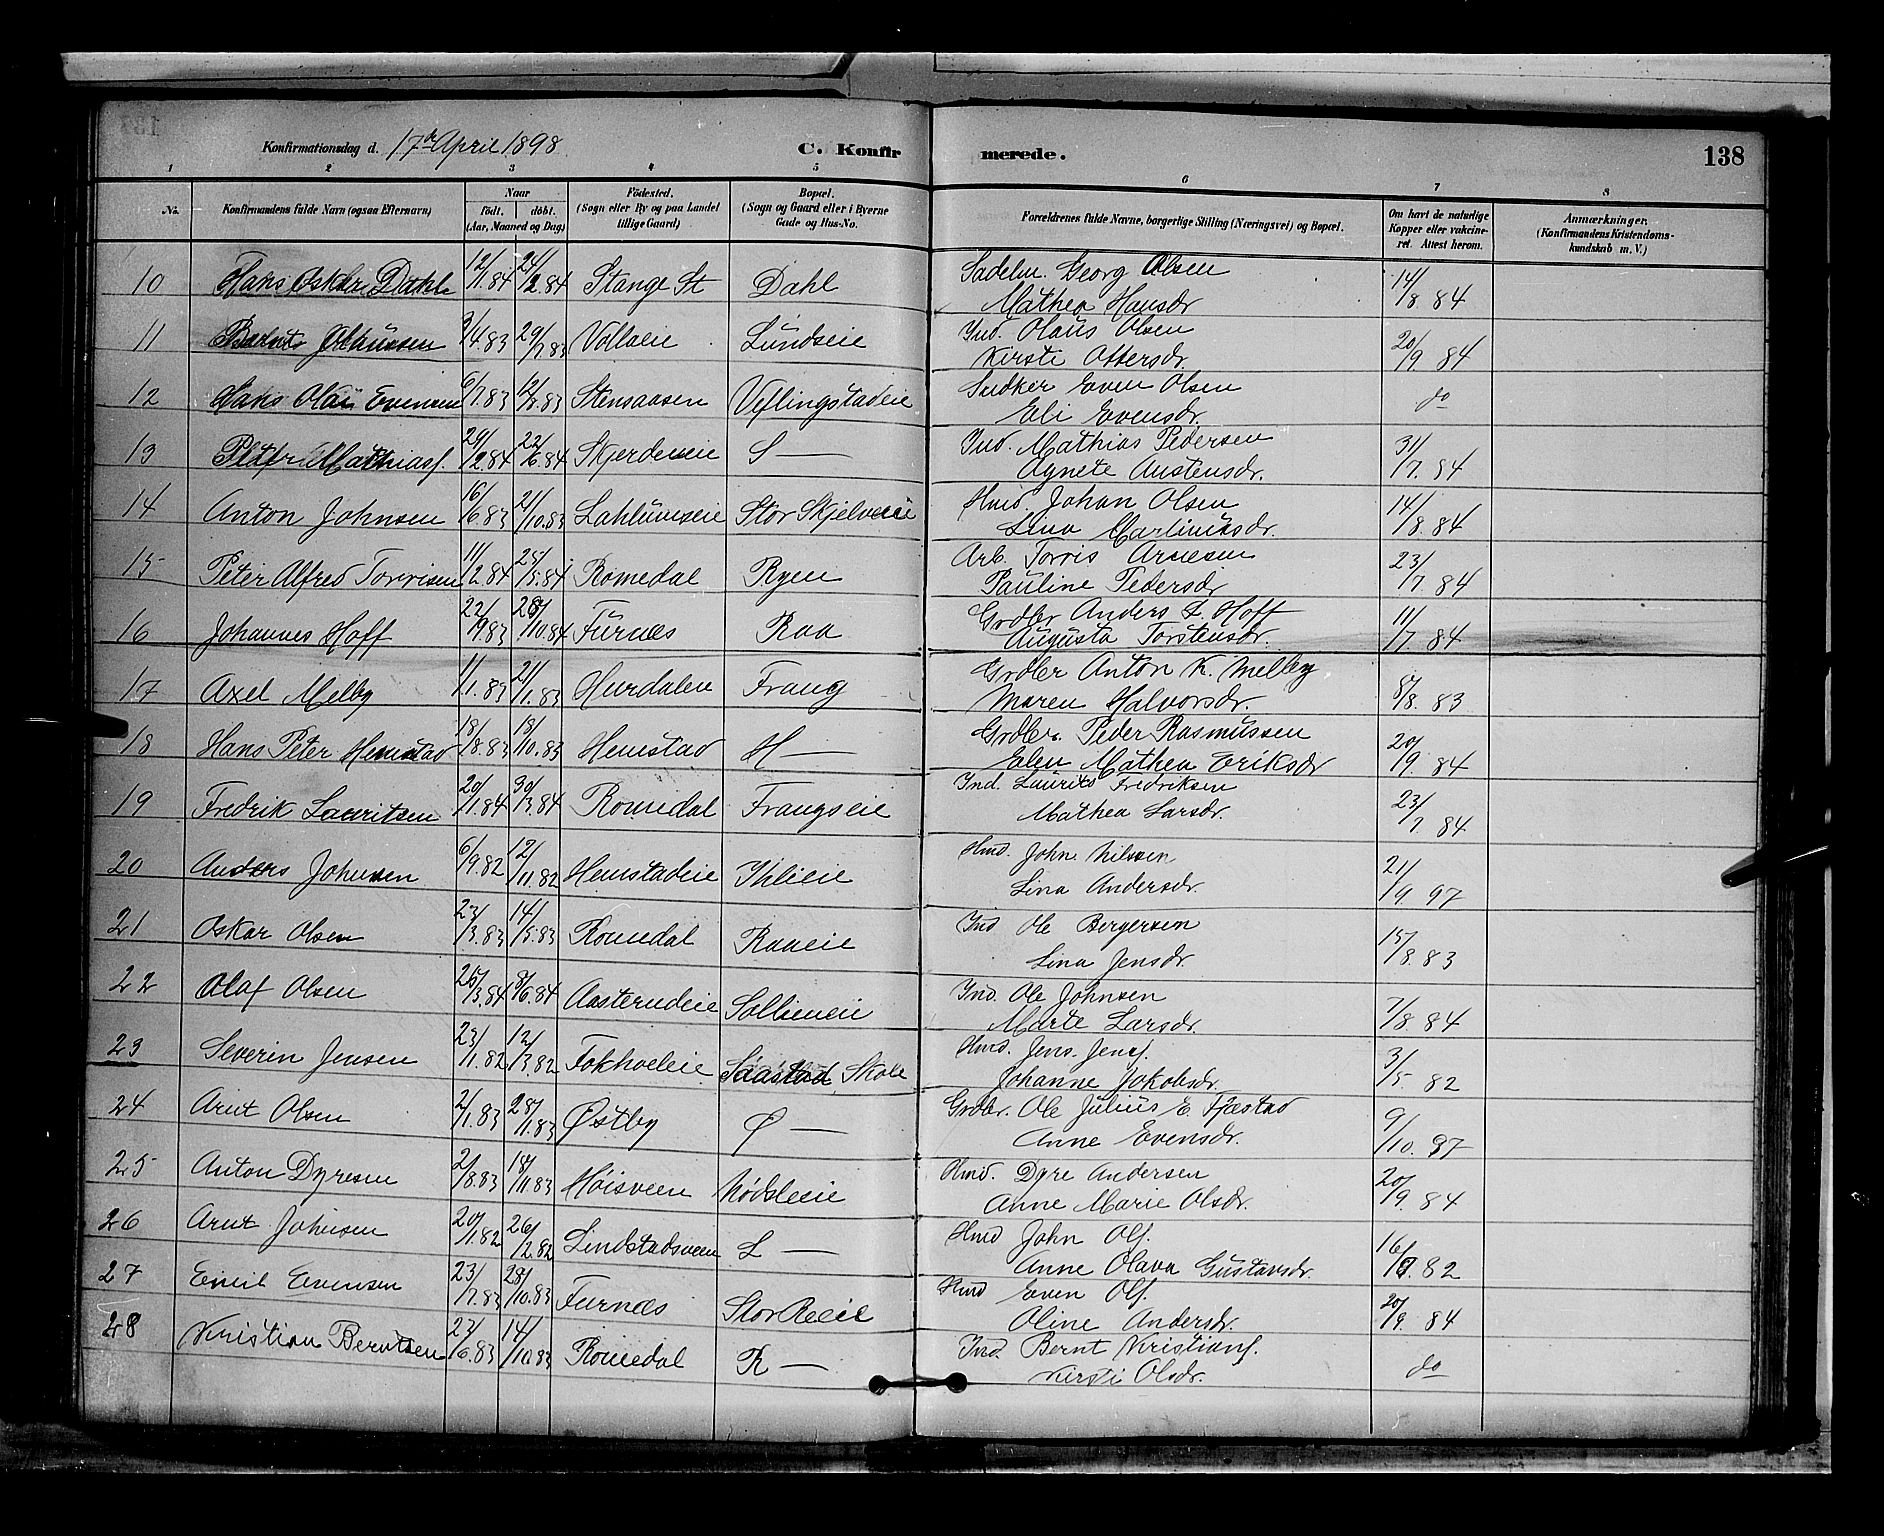 Konfirmationsdag d. 17de April 1898 C. Konfirmerede. 138
1 2 3 4 5 6 7 8
No. Konfirmandens fulde Navn (ogsaa Efternavn) Naar født. døbt. (Aar, Maaned og Dag) Fødested. (Sogn eller By og paa Landet tillige Gaard) Bopæl. (Sogn og Gaard eller i Byerne Gade og Hus-No. Forældrenes fulde Navne, borgerlige Stilling (Næringsvei) og Bopæl. Om havt de naturlige Kopper eller vakcineret. Attest herom. Anmærkninger. (Konfirmandens Kristendomskundskab m. V.)
10 Hans Oskar Dahl 12/1.84 24/2.84 Stange St Dahl Sadelm. Georg Olsen 14/8.84
Mathea Hansdr
11 Bernt Olaussen 3/4.83 29/7.83 Vollaeie Lundseie Ind. Olaus Olsen 20/9 84
Kirsti Ottersdr.
12 Hans Olaf Evensen 6/7.83 12/8.83 Stensaasen Veflingstadeie Sndker Even Olsen do
Eli Evensdr.
13 Mathiasf. 29/2.84 22/6.84 Skjerdeneie S — Ind. Mathias Pedersen 31/7.84
Agnete Austensdr.
14 Anton Johnsen 16/6.83 21/10.83 Lahlumseie Stor Skjelveeie Hmd. Johan Olsen 14/8.84
Lina Martinusdr.
15 Peter Alfred Torrisen 11/2.84 25/5.84 Romedal Ryen Arb. Torris Arnesen 23/7 84
Pauline Pedersdr
16 Johannes Hoff 22/9.83 28/10.84 Furnes Raa Grdbr Anders L. Hoff 11/7. 84
Augusta Torstensdr.
17 Axel Melby 1/1.83 21/1.83 Hurdalen Frang Grdbr Anton K. Melby 8/8. 83
Maren Halvorsdr.
18 Hans Peter Hemstad 18/8.83 18/10.83 Hemstad H — Grdbr. Peder Rasmussen 20/9. 84
Elen Mathea Eriksdr
19 Fredrik Lauritsen 20/1.84 30/3.84 Romedal Frangseie Ind. Laurits Fredriksen 23/7. 84
Mathea Larsdr.
20 Anders Johnsen 6/9.82 12/11.82 Hemstadeie Ihlieie Hmd. Johne Nilssen 21/9. 97
Lina Andersdr.
21 Oskar Olsen 23/3.83 14/5.83 Romedal Raaeie Ind Ole Bergersen 15/8.83
Lina Jensdr.
22 Olaf Olsen 25/3.84 8/6.84 Aasterudeie Sollieneie Ind. Ole Johnsen 7/8 84
Marte Larsdr.
23 Severin Jensen 23/1.82 12/3.82 Fokholeie Saastad Skole Hmd. Jens Jensf. 3/5. 82
Johanne Jakobsdr.
24 Arnt Olsen 2/1.83 28/1.83 Østby Ø — Grdbr. Ole Julius E. Fjæstad 9/10. 97
Anne Evensdr.
25 Anton Dyresen 2/8.83 18/11.83 Høisveen Nødsleeie Hmd. Dyre Andersen 20/9. 84
Anne Marie Olsdr.
26 Arnt Johnsen 20/1.82 26/2.82 Lindstadsveen L — Hmd John Olf. 16/9.82
Anne Olava Gustavsdr.
27 Emil Evensen 23/7.83 28/10.83 Furnes Stor Reeie Hmd Even Olf. 20/9. 84
Oline Andersdr.
28 Kristian Berntsen 23/6.83 14/10.83 Romedal R — Ind. Bernt Kristianf. do
Kirsti Olsdr.